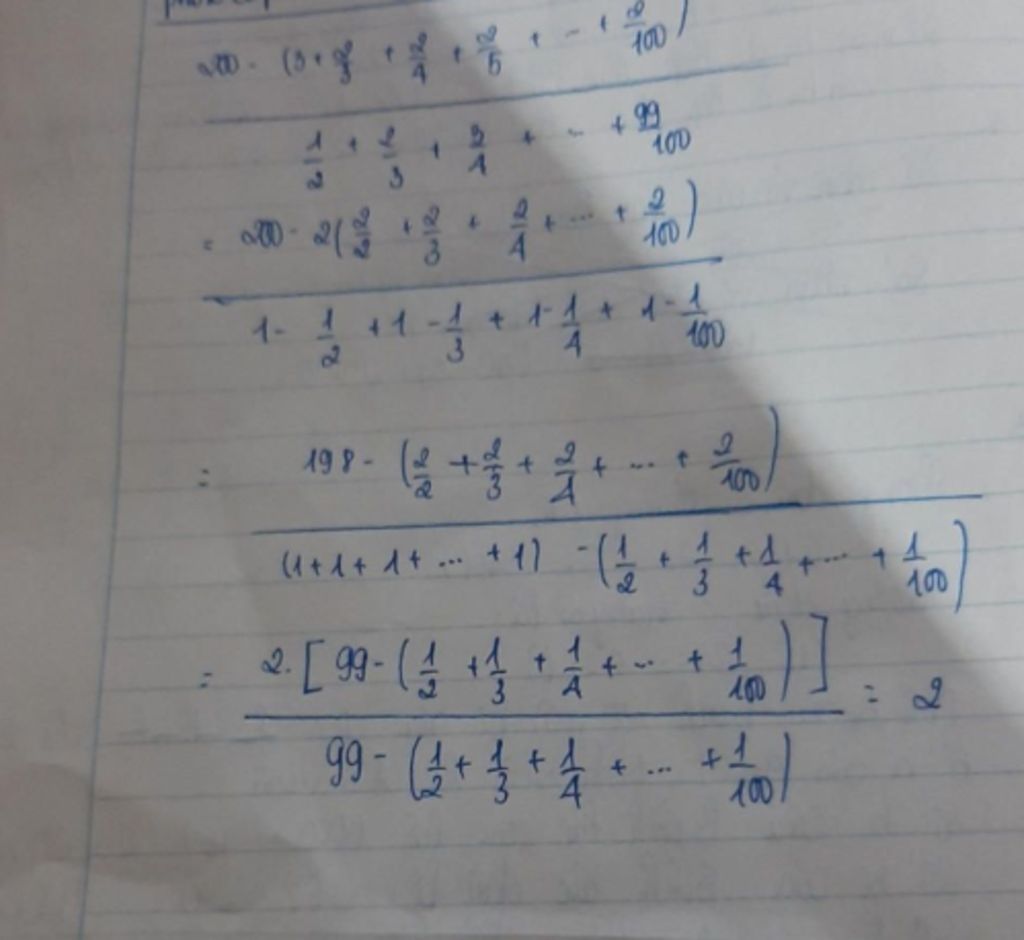 200 - (3 + 2/3 + 2/4 + 2/5 + ... + 2/100)
1/2 + 2/3 + 3/4 + ... + 99/100
= 200 - 2 (2/2 + 2/3 + 2/4 + ... + 2/100)
1 - 1/2 + 1 - 1/3 + 1 - 1/4 + 1 - 1/100
= 198 - (2/2 + 2/3 + 2/4 + ... + 2/100)
(1 + 1 + 1 + ... + 1) - (1/2 + 1/3 + 1/4 + ... + 1/100)
= 2. [99 - (1/2 + 1/3 + 1/4 + ... + 1/100)] = 2
99 - (1/2 + 1/3 + 1/4 + ... + 1/100)